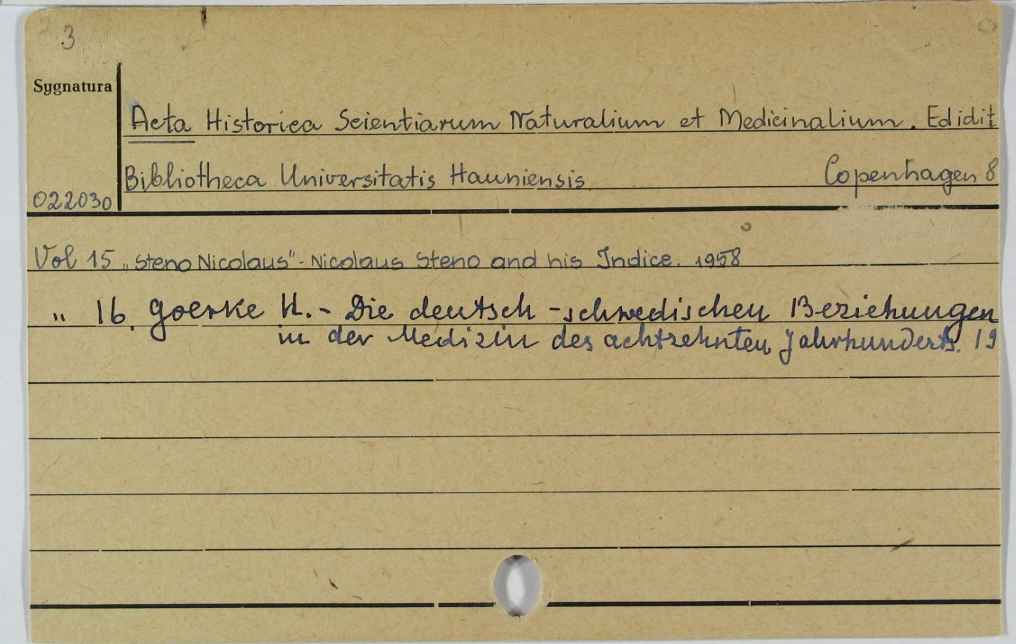 3
Sygnatura
Acta Historica Scientiarum Naturalium et Medicinalium. Edidit
Bibliotheca Universitatis Hauniensis Copenhagen 8
022030
Vol 15 „Steno Nicolaus"-Nicolaus Steno and his Indice. 1958
„ 16. Goerke H. - Die deutsch - schwedischen Beziehungen
in der Medizin des achtzehnten Jahrhunderts. 19